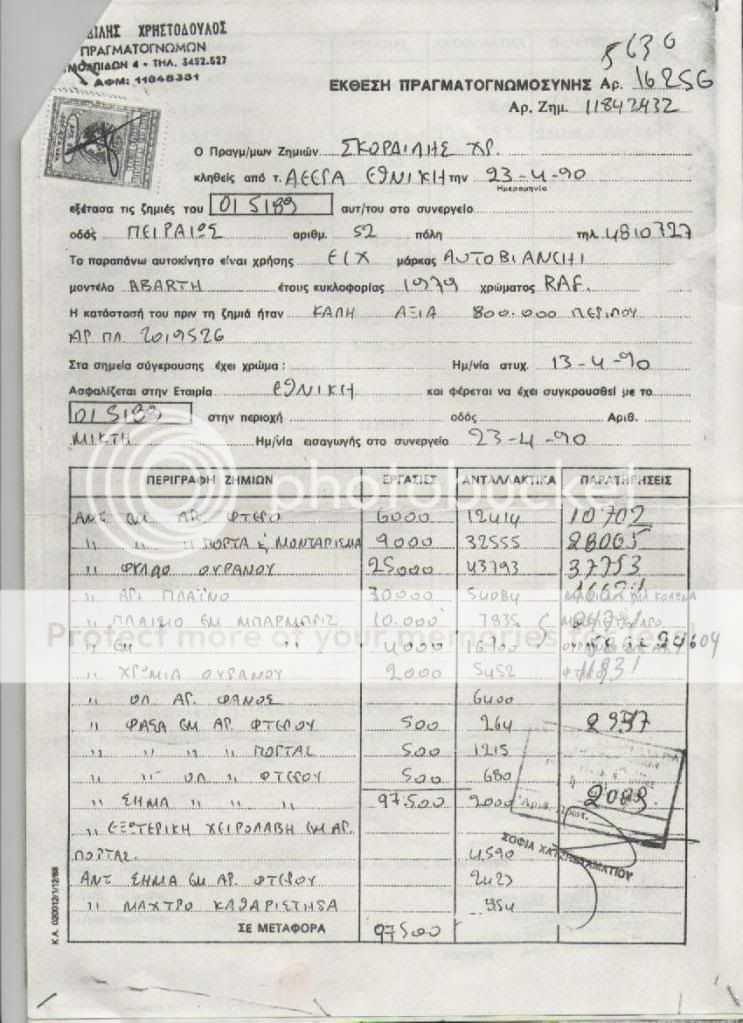 ΧΡΗΣΤΟΔΟΥΛΟΣ
ΠΡΑΓΜΑΤΟΓΝΩΜΩΝ
4 - ΤΗΛ. 3452.527
ΑΦΜ: 11848331
5636
ΕΚΘΕΣΗ ΠΡΑΓΜΑΤΟΓΝΩΜΟΣΥΝΗΣ Αρ. 16256
Αρ. Ζημ. 11842432
Ο Πραγμ/μων Ζημιών ΣΚΟΡΔΙΛΗΣ ΧΡ.
κληθείς από τ. ΑΕΕΓΑ ΕΘΝΙΚΗ την 23-4-90
Ημερομηνία
εξέτασα τις ζημιές του ΟΙ 5189 αυτ/του στο συνεργείο
οδός ΠΕΙΡΑΙΩΣ αριθμ. 52 πόλη τηλ. 4810727
Το παραπάνω αυτοκίνητο είναι χρήσης ΕΙΧ μάρκας AUTOBIANCHI
μοντέλο ABARTH έτους κυκλοφορίας 1979 χρώματος RAF.
Η κατάστασή του πριν τη ζημιά ήταν ΚΑΛΗ ΑΞΙΑ 800.000 ΠΕΡΙΠΟΥ
ΑΡ ΠΛ 2019526
Στα σημεία σύγκρουσης έχει χρώμα : Ημ/νία ατυχ. 13-4-90
Ασφαλίζεται στην Εταιρία ΕΘΝΙΚΗ και φέρεται να έχει συγκρουσθεί με το
ΟΙ 5189 στην περιοχή οδός Αριθ.
ΜΙΚΤΗ Ημ/νία εισαγωγής στο συνεργείο 23-4-90
ΠΕΡΙΓΡΑΦΗ ΖΗΜΙΩΝ ΕΡΓΑΣΙΕΣ ΑΝΤΑΛΛΑΚΤΙΚΑ ΠΑΡΑΤΗΡΗΣΕΙΣ
photobucket
ΑΝΤ ΕΜ ΑΡ. ΦΤΕΡΟ 6000 12414 10702
" " " ΠΟΡΤΑ & ΜΟΝΤΑΡΙΣΜΑ 9.000 32555 28065
" ΦΥΛΛΟ ΟΥΡΑΝΟΥ 25000 43793 37753
" ΑΡ. ΠΛΑΪΝΟ 30000 54084
" ΠΛΑΙΣΙΟ ΕΜ ΜΠΑΡΜΠΡΙΖ 10.000 7835
Protect more of your memories for less!
" ΕΜ " 4000 16700 24604
" ΧΡΩΜΙΑ ΟΥΡΑΝΟΥ 2000 5452
" ΟΠ. ΑΡ. ΦΑΝΟΣ 6400
" ΦΑΣΑ ΕΜ ΑΡ. ΦΤΕΡΟΥ 500 264
" " " " ΠΟΡΤΑΣ 500 1215
" " ΟΠ " ΦΤΕΡΟΥ 500 680
" ΣΗΜΑ " " " 97.500 2000 2083
" ΕΞΩΤΕΡΙΚΗ ΧΕΙΡΟΛΑΒΗ ΕΜ ΑΡ.
ΠΟΡΤΑΣ. 4590
ΣΟΦΙΑ
ΑΝΤ ΣΗΜΑ ΕΜ ΑΡ. ΦΤΕΡΟΥ 2423
" ΜΑΧΤΡΟ ΚΑΘΑΡΙΣΤΗΡΑ 354
ΣΕ ΜΕΤΑΦΟΡΑ 97500
Κ.Α. 020012/1/12/88